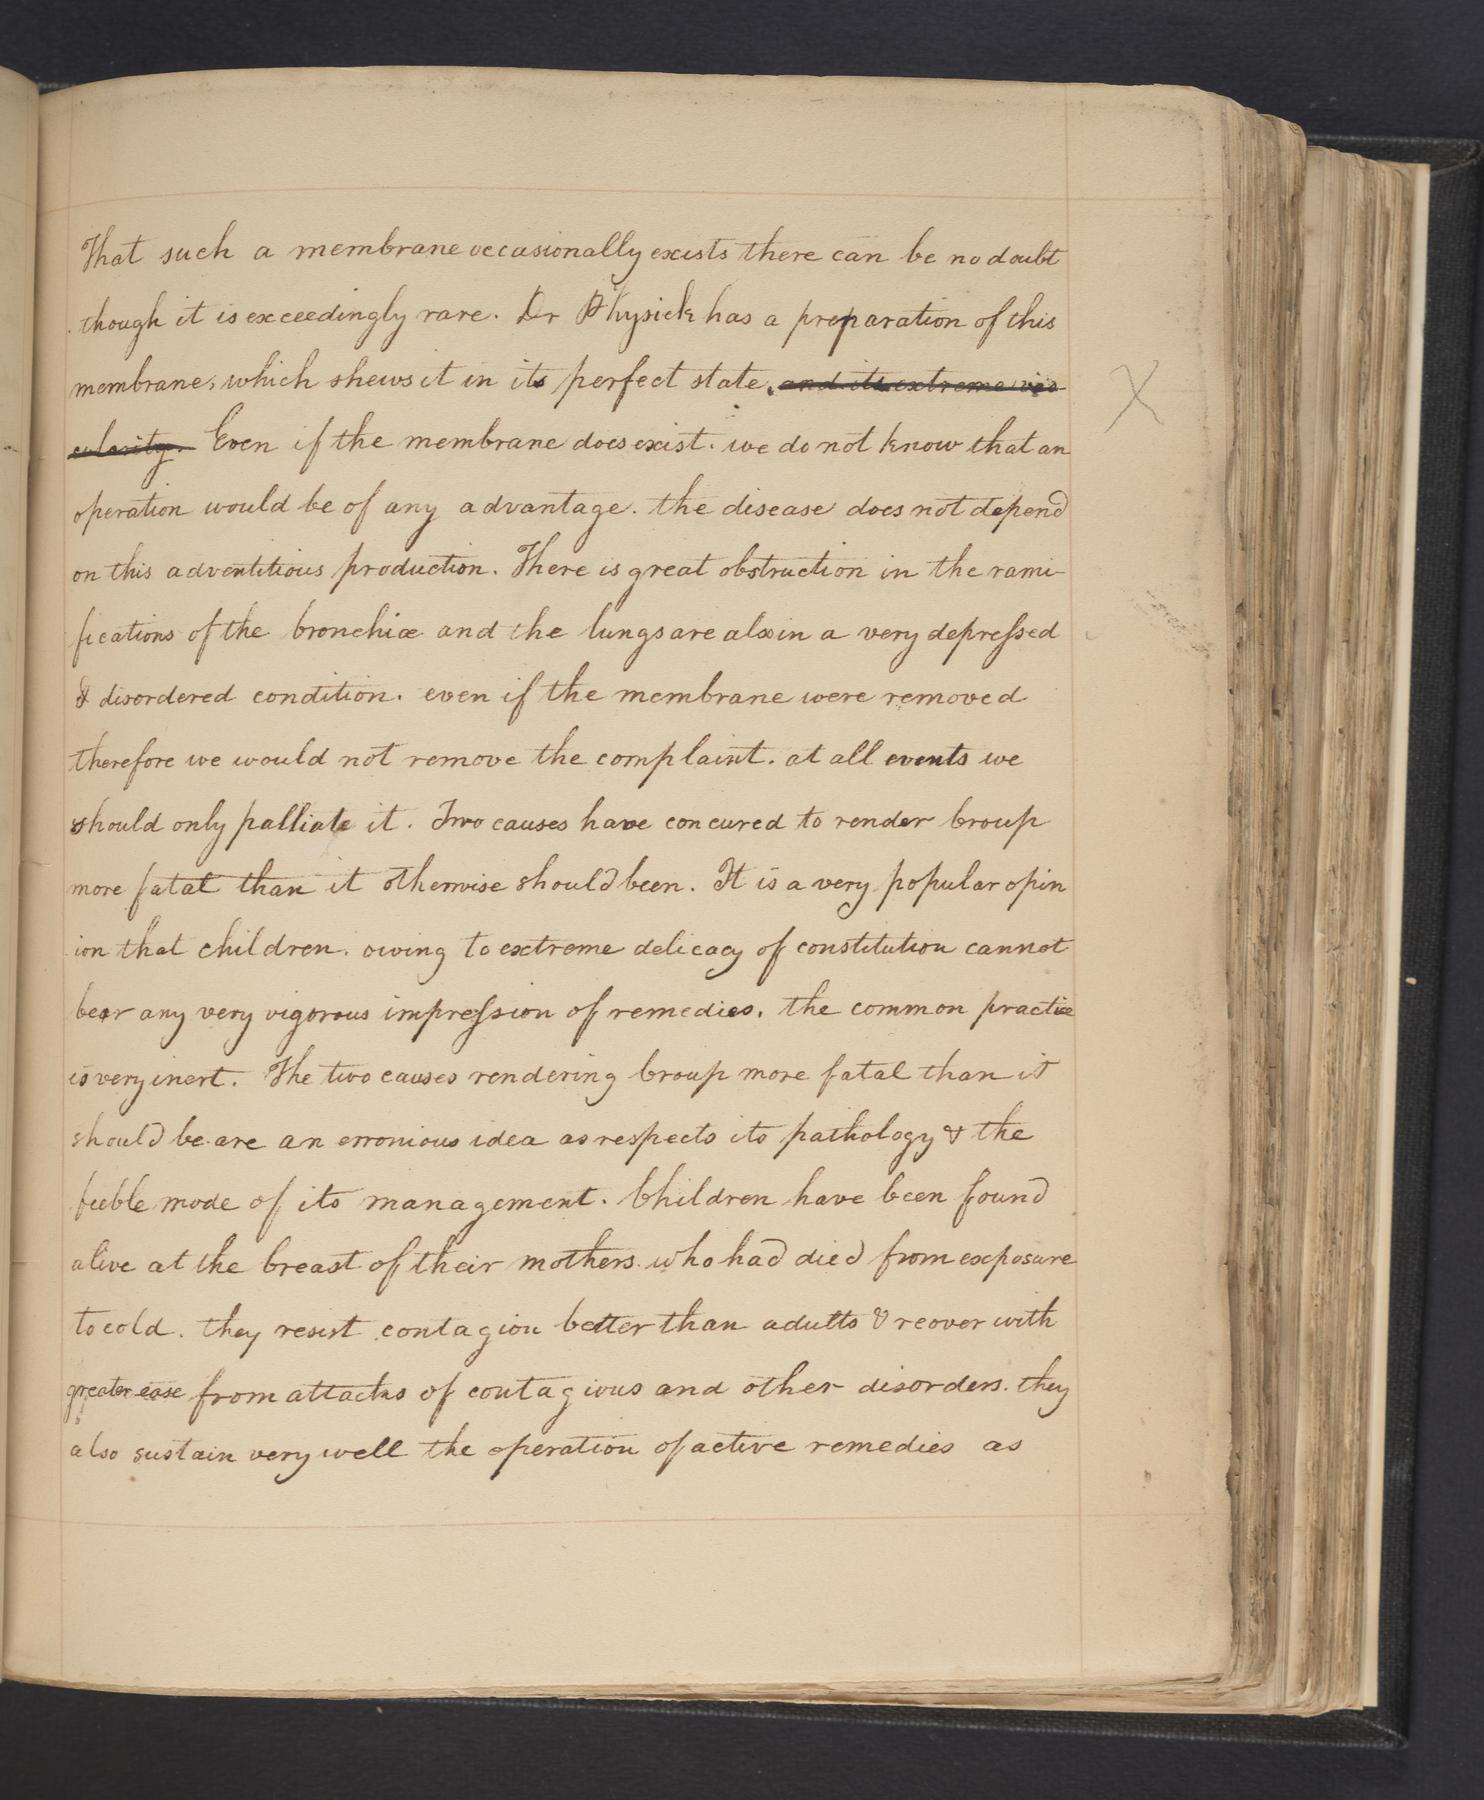 That such a membrane occasionally exists there can be no doubt
though it is exceedingly rare. Dr Physick has a preparation of this
membrane, which shews it in its perfect state, and its extreme vas
cularity. Even if the membrane does exist. we do not know that an
operation would be of any advantage. the disease does not depend
on this adventitious production. There is great obstruction in the rami-
fications of the bronchiæ and the lungs are also in a very depressed
& disordered condition. even if the membrane were removed
therefore we would not remove the complaint. at all events we
should only palliate it. Two causes have concured to render Croup
more fatal than it otherwise should been. It is a very popular opin
ion that children. owing to extreme delicacy of constitution cannot
bear any very vigorous impression of remedies. the common practice
is very inert. The two causes rendering Croup more fatal than it
should be are an erronious idea as respects its pathology & the
feeble mode of its management. Children have been found
alive at the breast of their mothers. who had died from exposure
to cold. they resist contagion better than adults & reover with
greater ease from attacks of contagious and other disorders. they
also sustain very well the operation of active remedies as
X